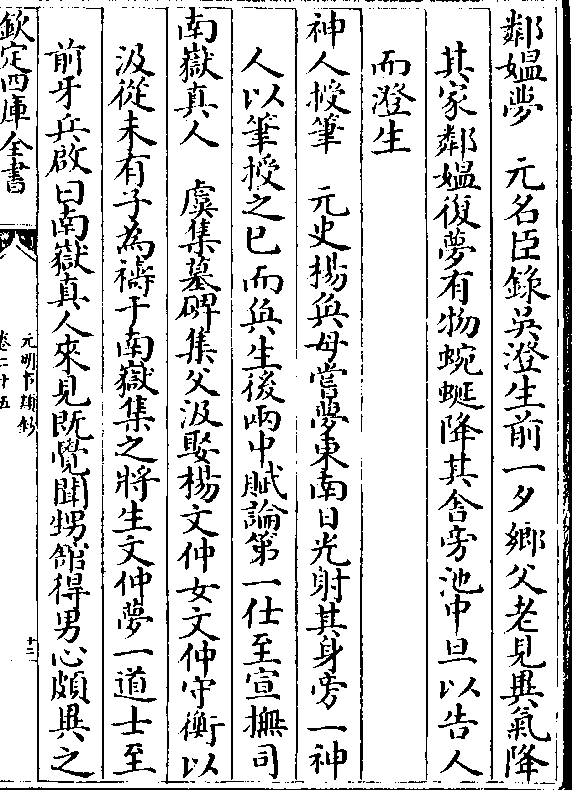 鄰媼夢　元名臣錄吳澄生前一夕鄉父老見異氣降
其家鄰媼復夢有物蜿蜒降其舍旁池中旦以告人
而澄生
神人授筆　元史楊㒷母嘗夢東南日光射其身旁一神
人以筆授之已而㒷生後兩中賦論第一仕至宣撫司
南嶽真人　虞集墓碑集父汲娶楊文仲女文仲守衡以
汲從未有子為禱于南嶽集之將生文仲夢一道士至
前牙兵啟曰南嶽真人來見既覺聞甥館得男心頗異之
欽定四庫全書
元明事類鈔
卷二十五
十二